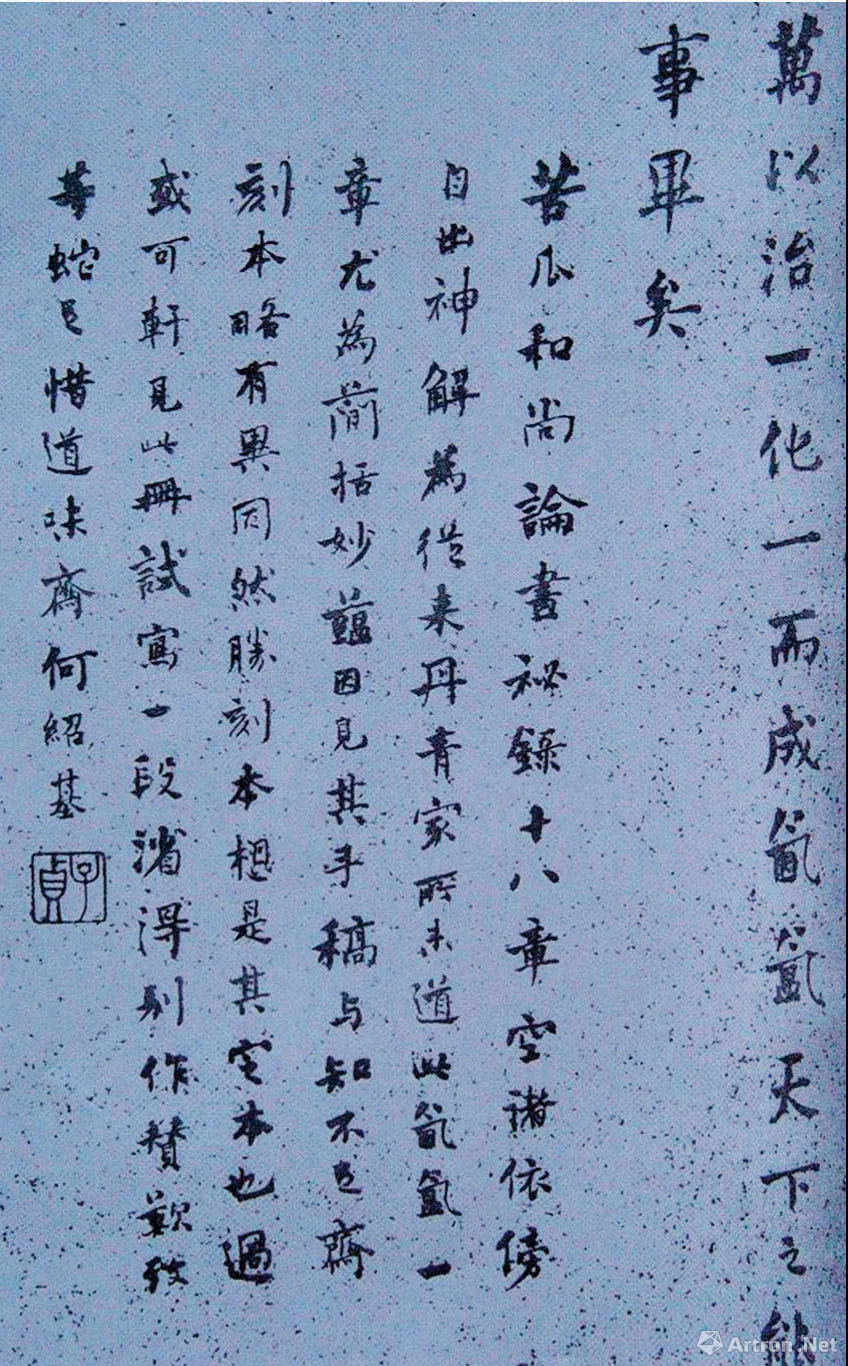 萬以治一化一而成氤氳天下之能
事畢矣
苦瓜和尚論書祕錄十八章空諸依傍
自出神解為從來丹青家所未道此氤氳一
章尤為簡括妙蘊因見其手稿与知不足齋
刻本略有異同然勝刻本想是其定本也過
可軒見此冊試寫一段渻得別作贊歎致
等蛇足惜道味齋何紹基
子貞
Artron.Net